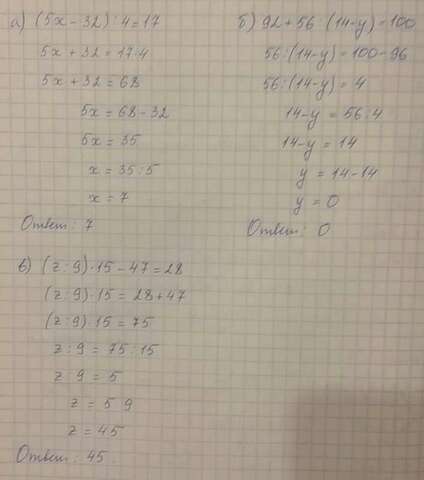 а) (5x - 32) : 4 = 17
5x + 32 = 17·4
5x + 32 = 68
5x = 68 - 32
5x = 35
x = 35 : 5
x = 7
Ответ: 7
б) 92 + 56 : (14-y) = 100
56 : (14-y) = 100 - 96
56 : (14-y) = 4
14-y = 56 : 4
14-y = 14
y = 14-14
y = 0
Ответ: 0
в) (z : 9)·15 - 47 = 28
(z : 9)·15 = 28+47
(z : 9)·15 = 75
z : 9 = 75 : 15
z : 9 = 5
z = 5·9
z = 45
Ответ: 45.